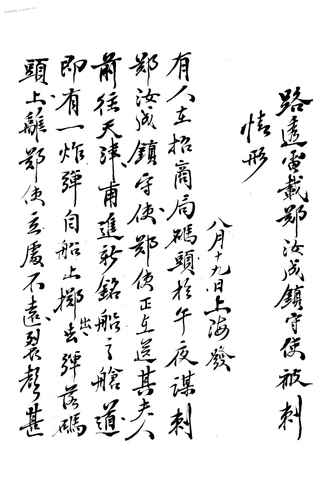 路透電載鄭汝成鎮守使被刺
情形
八月十九日上海發
有人在招商局碼頭於午夜謀刺
鄭汝成鎮守使鄭使正在送其夫人
前往天津甫進新銘船之艙道
即有一炸彈自船上擲出彈落碼
頭上離鄭使立處不遠裂聲甚